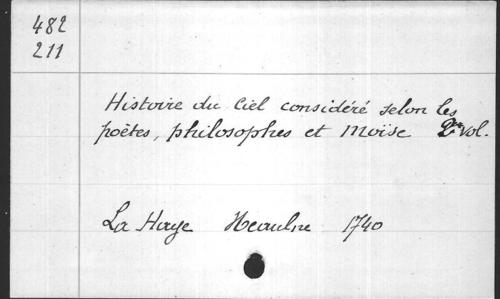 482
211
Histoire du Ciel considéré selon les
poëtes, philosophes et Moïse 2 vol.
La Haye Neaulne 1740